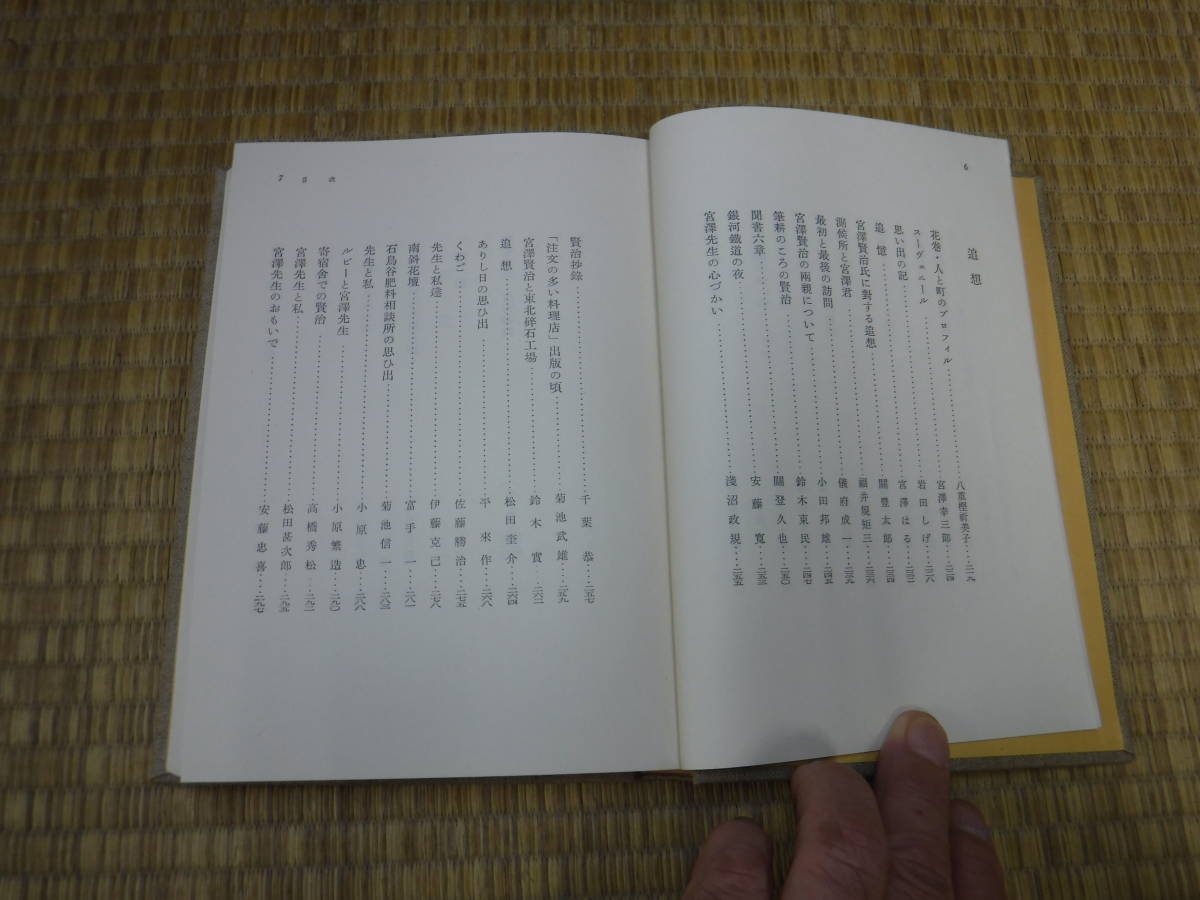 6
追想
花巻・人と町のプロフィル……八重樫祈美子…二一九
スーヴェニール……宮澤幸三郎…二二四
思い出の記……岩田しげ…二二八
追憶……宮澤はる…二三二
宮澤賢治氏に對する追想……關豊太郎…二三四
測候所と宮澤君……福井規矩三…二三六
最初と最後の訪問……儀府成一…二三九
宮澤賢治の兩親について……小田邦雄…二四五
筆耕のころの賢治……鈴木東民…二四七
聞書六章……關登久也…二五〇
銀河鐵道の夜……安藤寛…二五三
宮澤先生の心づかい……淺沼政規…二五五
7 目次
賢治抄錄……千葉恭…二五七
「注文の多い料理店」出版の頃……菊池武雄…二五九
宮澤賢治と東北碎石工場……鈴木實…二六二
追想……松田奎介…二六四
ありし日の思ひ出……平來作…二六八
くわご……佐藤勝治…二七五
先生と私達……伊藤克己…二七八
南斜花壇……富手一…二八一
石鳥谷肥料相談所の思ひ出……菊池信一…二八三
先生と私……小原忠…二八八
ルビーと宮澤先生……小原繁造…二九〇
寄宿舍での賢治……高橋秀松…二九二
宮澤先生と私……松田甚次郎…二九五
宮澤先生のおもいで……安藤忠喜…二九七